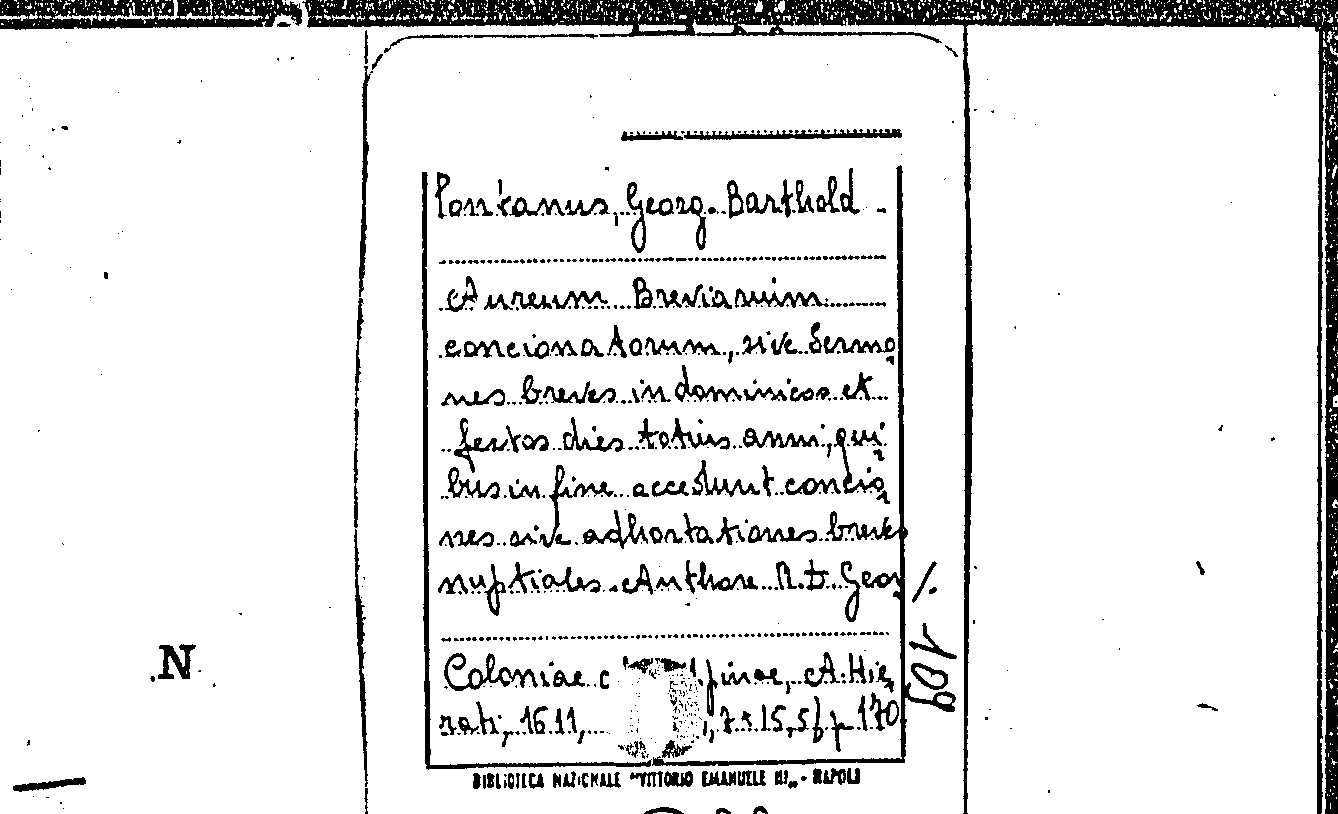 Pontanus, Georg. Barthold -
Aureum Breviarium
concionatorum, sive Sermo
nes breves in dominicos et
festos dies totius anni, qui
bus in fine accedunt concio
nes sive adhortationes breves
nuptiales. Authore R. D. Geor ./.
Coloniae A. Hie
rati, 1611, 7 x 15,5 p 170
109
N
BIBLIOTECA NAZIONALE "VITTORIO EMANUELE III" - NAPOLI